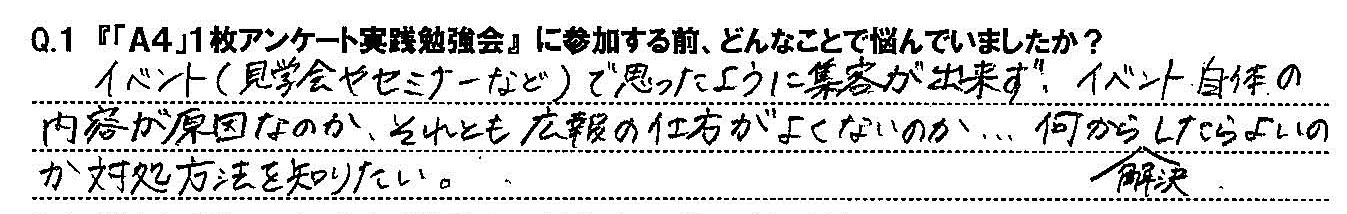 Q.1 『「A4」1枚アンケート実践勉強会』に参加する前、どんなことで悩んでいましたか？
イベント(見学会やセミナーなど)で思ったように集客が出来ず、イベント自体の
内容が原因なのか、それとも広報の仕方がよくないのか… 何から解決したらよいの
か対処方法を知りたい。